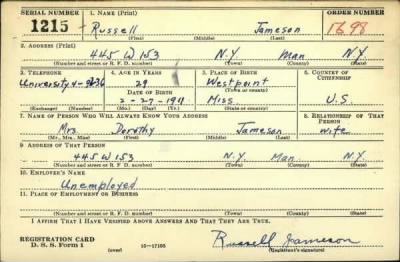 SERIAL NUMBER 1. NAME (Print) ORDER NUMBER
1215 Russell Jameson 1698
(First) (Middle) (Last)
2. ADDRESS (Print)
445 W 153 N.Y. Man N.Y.
(Number and street or R. F. D. number) (Town) (County) (State)
3. TELEPHONE 4. AGE IN YEARS 5. PLACE OF BIRTH 6. COUNTRY OF CITIZENSHIP
University 4- 29 Westpoint
DATE OF BIRTH (Town or county)
2-27-1911 Miss. U.S.
(Exchange) (Number) (Mo.) (Day) (Yr.) (State or country)
7. NAME OF PERSON WHO WILL ALWAYS KNOW YOUR ADDRESS 8. RELATIONSHIP OF THAT PERSON
Mrs. Dorothy Jameson wife
(Mr., Mrs., Miss) (First) (Middle) (Last)
9. ADDRESS OF THAT PERSON
445 W 153 N.Y. Man. N.Y.
(Number and street or R. F. D. number) (Town) (County) (State)
10. EMPLOYER'S NAME
Unemployed
11. PLACE OF EMPLOYMENT OR BUSINESS
(Number and street or R. F. D. number) (Town) (County) (State)
I AFFIRM THAT I HAVE VERIFIED ABOVE ANSWERS AND THAT THEY ARE TRUE.
REGISTRATION CARD
D. S. S. Form 1 (over) 16-17105 Russell Jameson
(Registrant's signature)